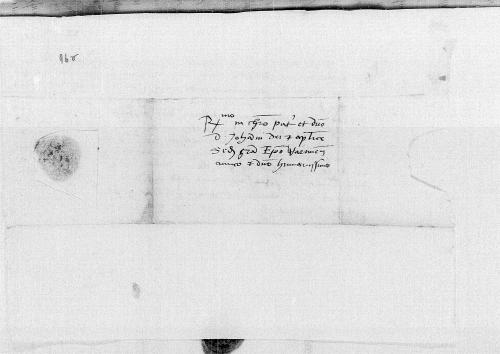 160
R^mo in chro patri et dno
d Johanni dei et aplice
Sedis gra Epo Warmien
amico et dno honorandissimo